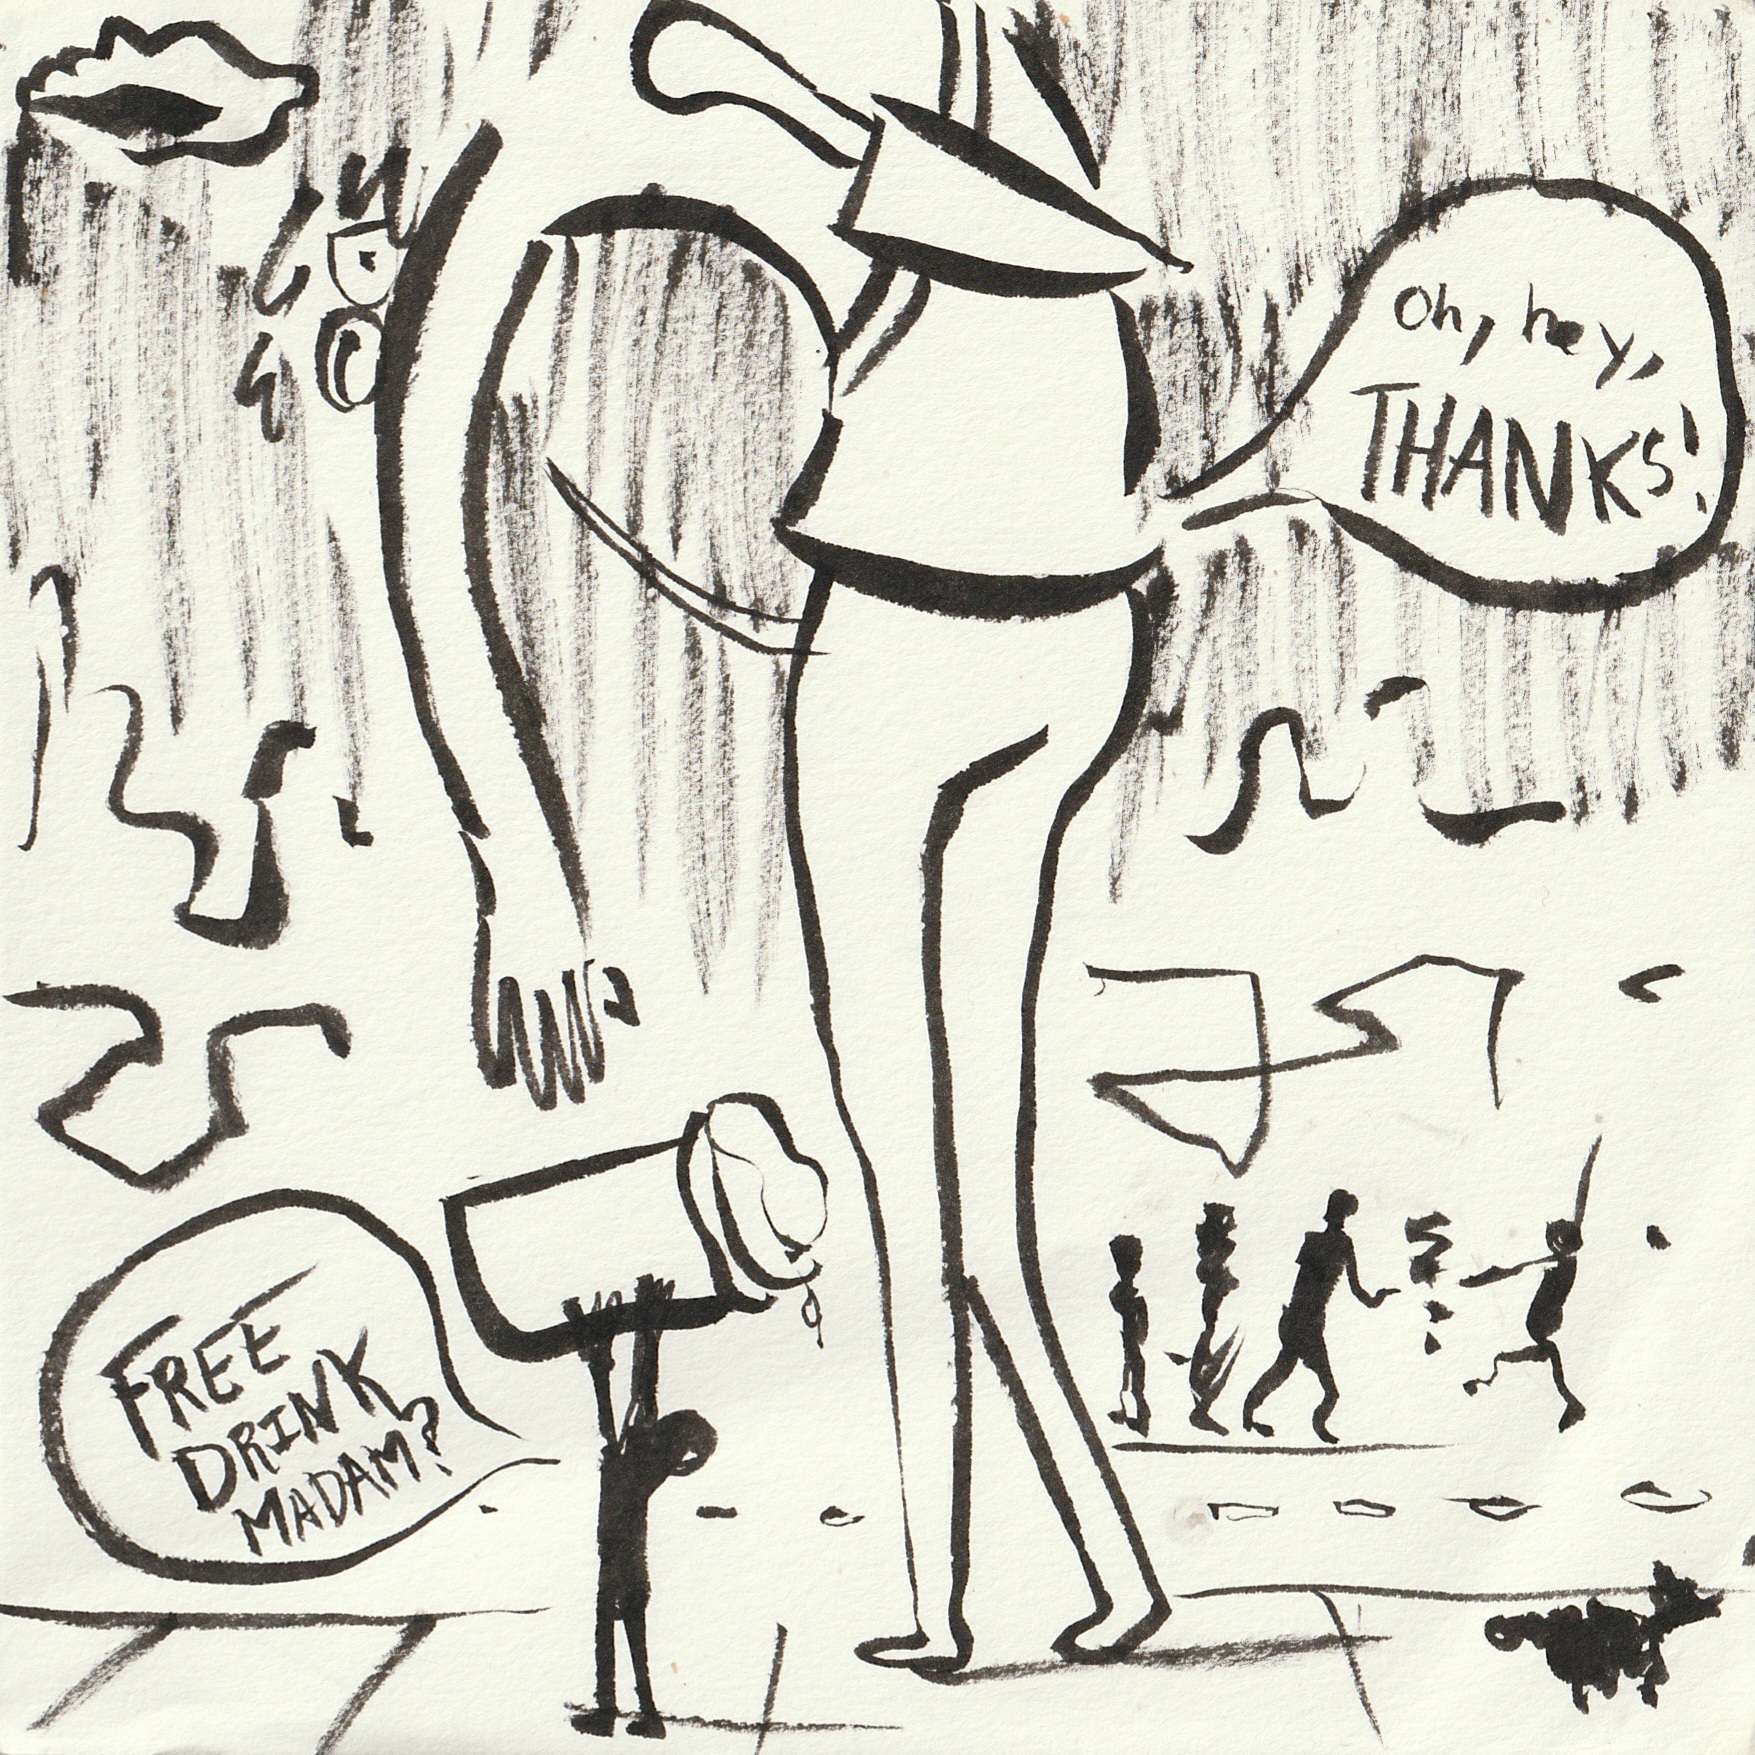 Oh, hey,
THANKS!
FREE
DRINK
MADAM?